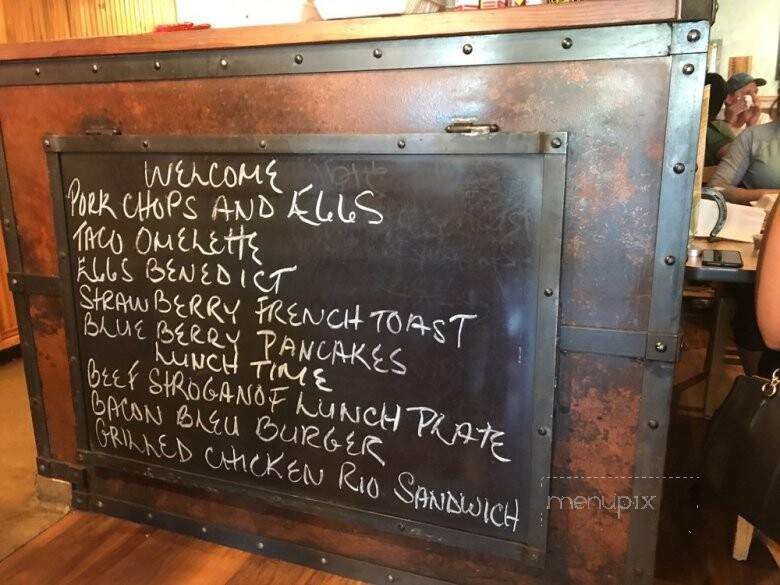 WELCOME
PORK CHOPS AND EGGS
TACO OMELETTE
EGGS BENEDICT
STRAWBERRY FRENCH TOAST
BLUE BERRY PANCAKES
LUNCH TIME
BEEF STROGANOF LUNCH PLATE
BACON BLEU BURGER
GRILLED CHICKEN RIO SANDWICH
menupix